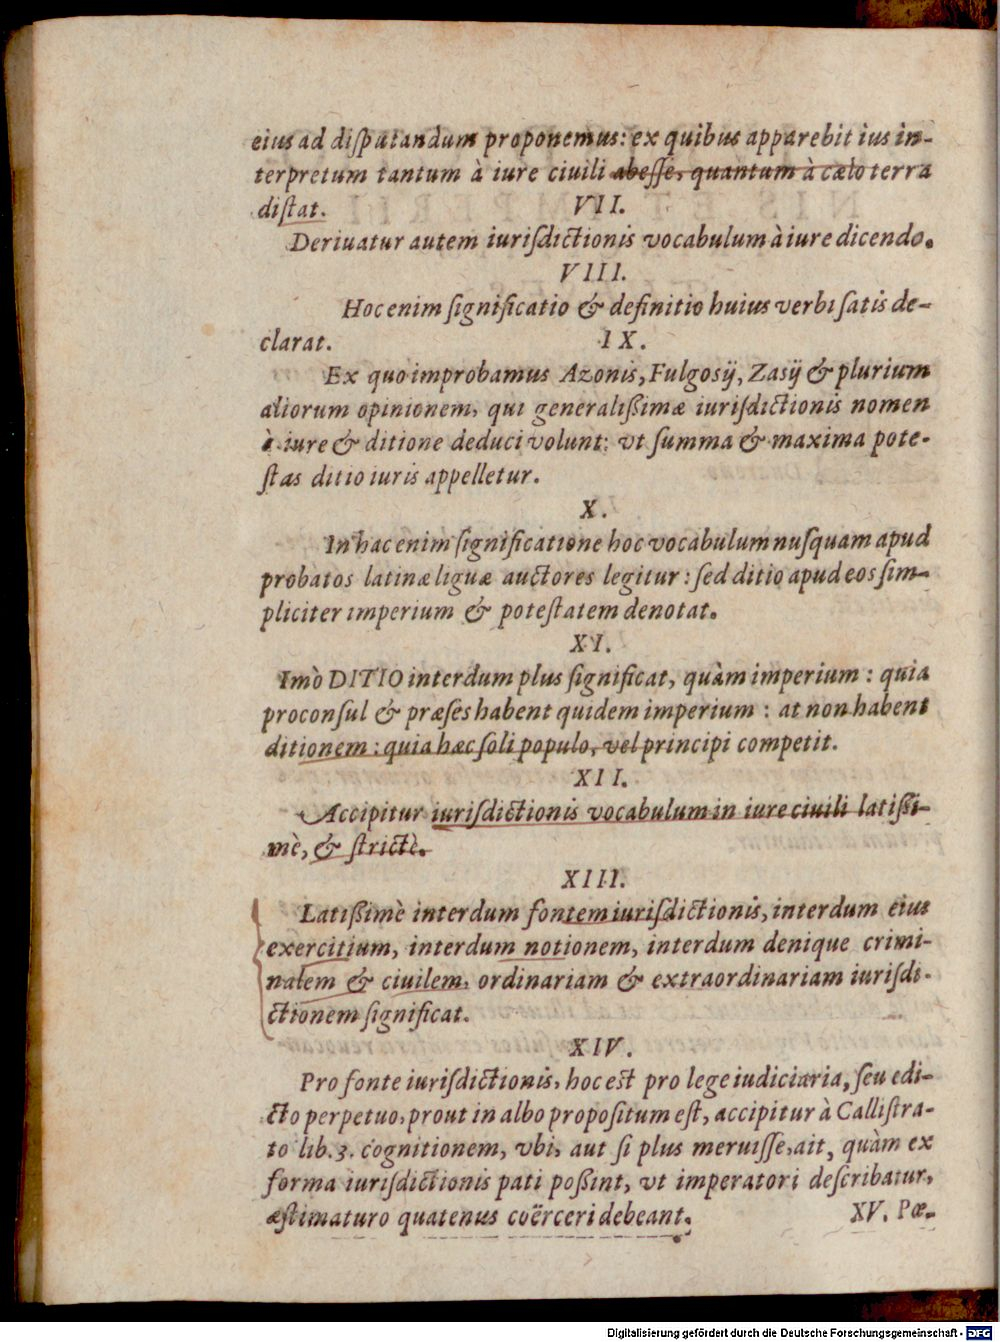 eius ad diſputandum proponemus: ex quibus apparebit ius in-
terpretum tantum à iure ciuili abeſſe, quantum à cælo terra
diſtat.
VII.
Deriuatur autem iuriſdictionis vocabulum à iure dicendo.
VIII.
Hoc enim ſignificatio & definitio huius verbi ſatis de-
clarat.
IX.
Ex quo improbamus Azonis, Fulgosij, Zasij & plurium
aliorum opinionem, qui generalißimæ iuriſdictionis nomen
à iure & ditione deduci volunt: vt ſumma & maxima pote-
ſtas ditio iuris appelletur.
X.
In hac enim ſignificatione hoc vocabulum nuſquam apud
probatos latinæ liguæ auctores legitur: ſed ditio apud eos ſim-
pliciter imperium & poteſtatem denotat.
XI.
Imò DITIO interdum plus ſignificat, quàm imperium: quia
proconſul & præſes habent quidem imperium: at non habent
ditionem: quia hæc ſoli populo, vel principi competit.
XII.
Accipitur iuriſdictionis vocabulum in iure ciuili latißi-
mè, & ſtrictè.
XIII.
Latißimè interdum fontem iuriſdictionis, interdum eius
exercitium, interdum notionem, interdum denique crimi-
nalem & ciuilem, ordinariam & extraordinariam iuriſdi-
ctionem ſignificat.
XIV.
Pro fonte iuriſdictionis, hoc est pro lege iudiciaria, ſeu edi-
cto perpetuo, prout in albo propoſitum eſt, accipitur à Calliſtra-
to lib. 3. cognitionem, vbi, aut ſi plus meruiſſe, ait, quàm ex
forma iuriſdictionis pati poßint, vt imperatori deſcribatur,
æſtimaturo quatenus coërceri debeant.
XV. Pœ-
Digitalisierung gefördert durch die Deutsche Forschungsgemeinschaft - DFG